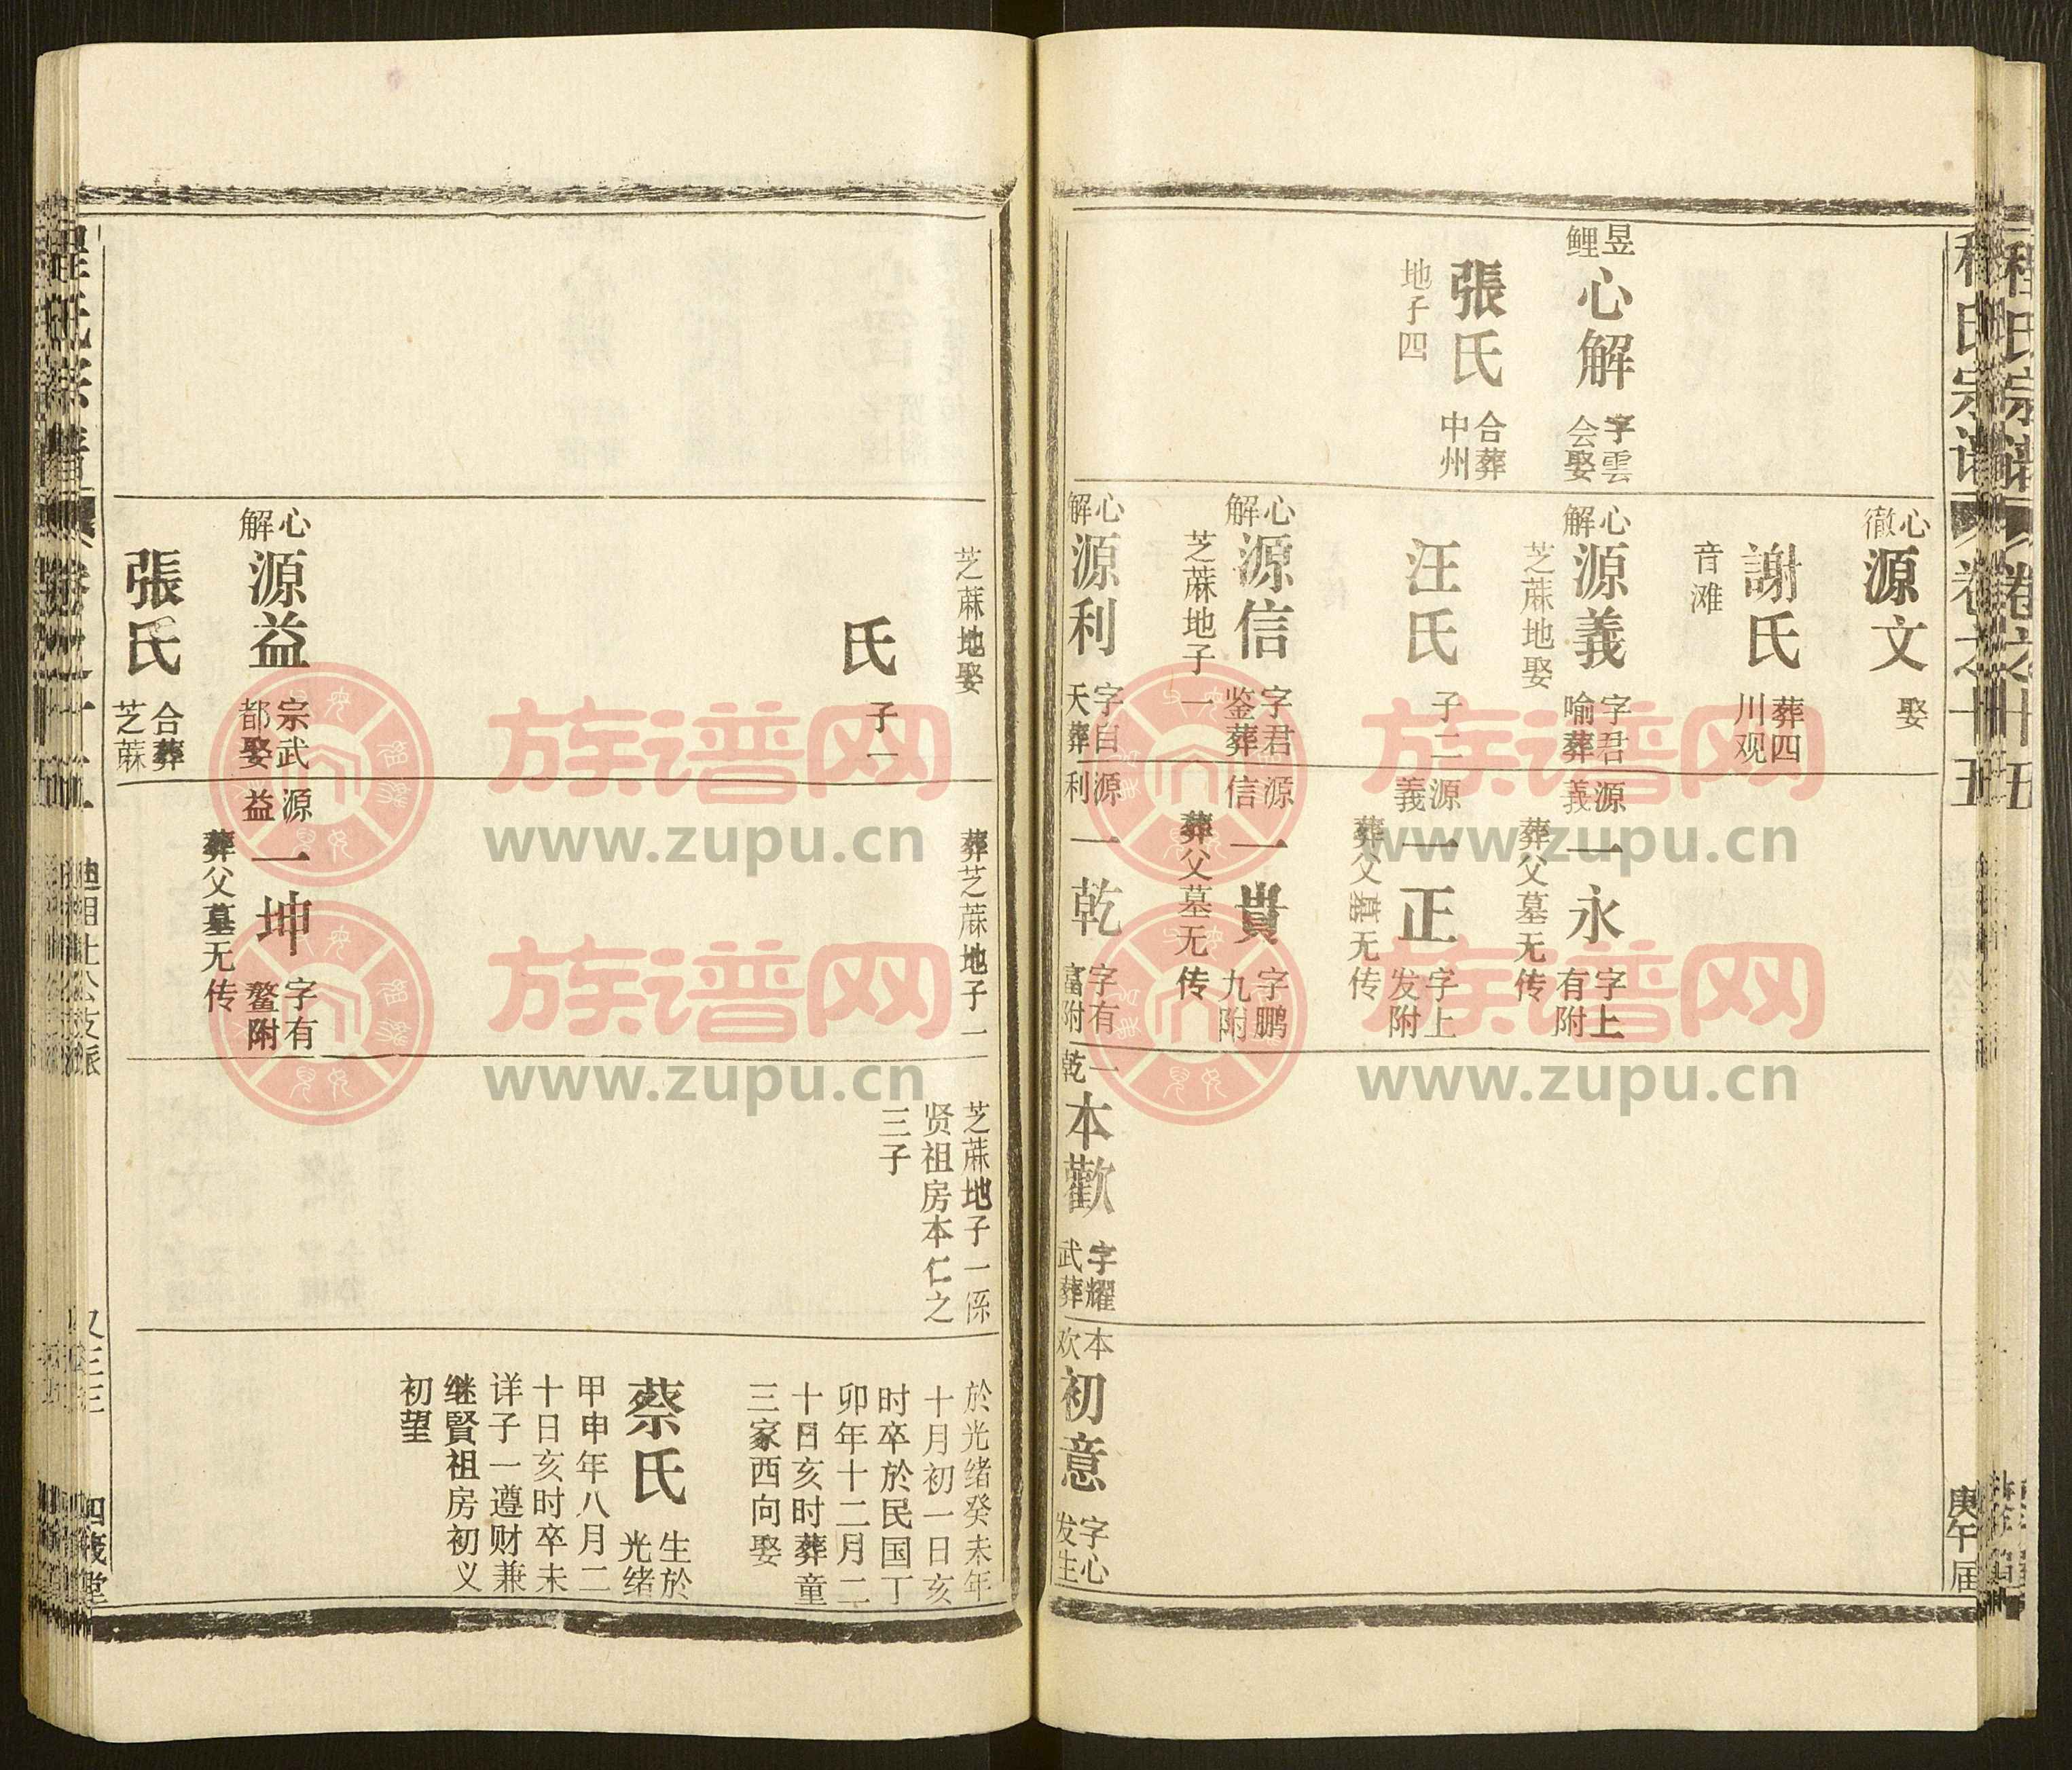 程氏宗譜
卷之十五
庚午届
昱
鲤
心解
字雲
会娶
張氏
合葬
中州
地子四
心
徹
源文
娶
謝氏
葬四
川观
音滩
心
解
源義
字君
喻葬
芝蔴地娶
汪氏
子二
心
解
源信
字君
鉴葬
芝蔴地子一
心
解
源利
字自
天葬
源
義
一永
字上
有附
葬父墓无传
源
義
一正
字上
发附
葬父墓无传
源
信
一貴
字鹏
九附
葬父墓无传
源
利
一乾
字有
富附
一
乾
本歡
字耀
武葬
本
欢
初意
字心
发生
芝蔴地娶
氏
子一
心
解
源益
宗武
都娶
張氏
合葬
芝蔴
葬芝蔴地子一
源
益
一坤
字有
鳌附
葬父墓无传
芝蔴地子一係
贤祖房本仁之
三子
於光绪癸未年
十月初一日亥
时卒於民国丁
卯年十二月二
十日亥时葬童
三家西向娶
蔡氏
生於
光绪
甲申年八月二
十日亥时卒未
详子一遵财兼
继賢祖房初义
初望
程氏宗譜
卷之十五
迪相社公支派
又三三
四箴堂
族谱网
www.zupu.cn
族谱网
www.zupu.cn
族谱网
www.zupu.cn
族谱网
www.zupu.cn